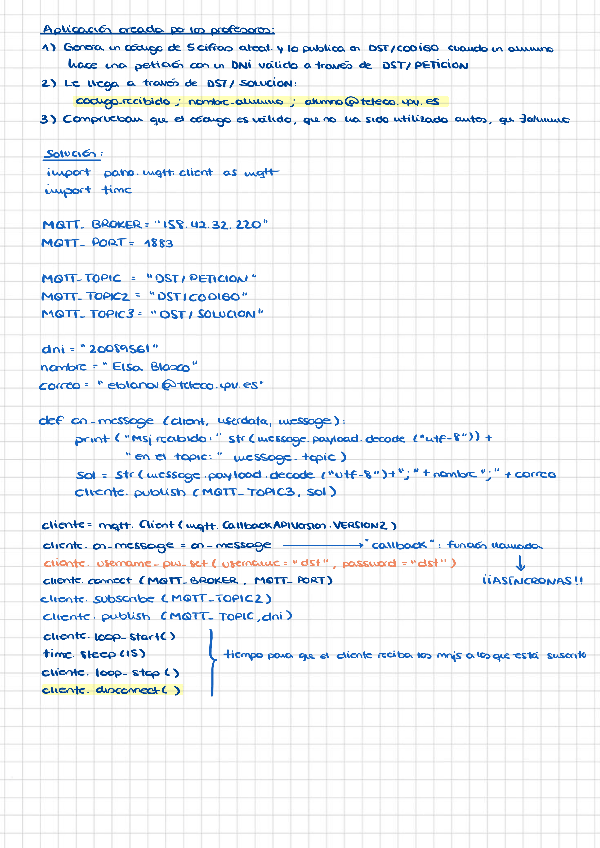 Aplicación creada por los profesores:
1) Genera un código de 5 cifras aleat. y lo publica en DST/CODIGO cuando un alumno
hace una petición con un DNI válido a través de DST/PETICION
2) Le llega a través de DST/SOLUCION:
codigo.recibido ; nombre.alumno ; alumno@teleco.upv.es
3) Comprueban que el código es válido, que no ha sido utilizado antes, que alumno
Solución:
import paho.mqtt.client as mqtt
import time
MQTT_BROKER = "158.42.32.220"
MQTT_PORT = 1883
MQTT_TOPIC = "DST/PETICION"
MQTT_TOPIC2 = "DST/CODIGO"
MQTT_TOPIC3 = "DST/SOLUCION"
dni = "20089561"
nombre = "Elsa Blasco"
correo = "eblanov@teleco.upv.es"
def on-message (client, userdata, message):
print ("Msj recibido:" str(message.payload.decode ("utf-8")) +
"en el topic:" message.topic)
sol = str(message.payload.decode ("utf-8")+";"+nombre";"+correo
cliente.publish (MQTT_TOPIC3, sol)
cliente = mqtt.Client(mqtt.CallbackAPIVersion.VERSION2)
cliente.on-message = on-message → "callback": función llamada
cliente.username_pw_set (username="dst", password="dst")
cliente.connect (MQTT_BROKER, MQTT_PORT) ¡¡ASÍNCRONAS!!
cliente.subscribe (MQTT_TOPIC2)
cliente.publish (MQTT_TOPIC, dni)
cliente.loop_start()
time.sleep(15) tiempo para que el cliente reciba los mnjs a los que está suscrito
cliente.loop_stop()
cliente.disconnect()